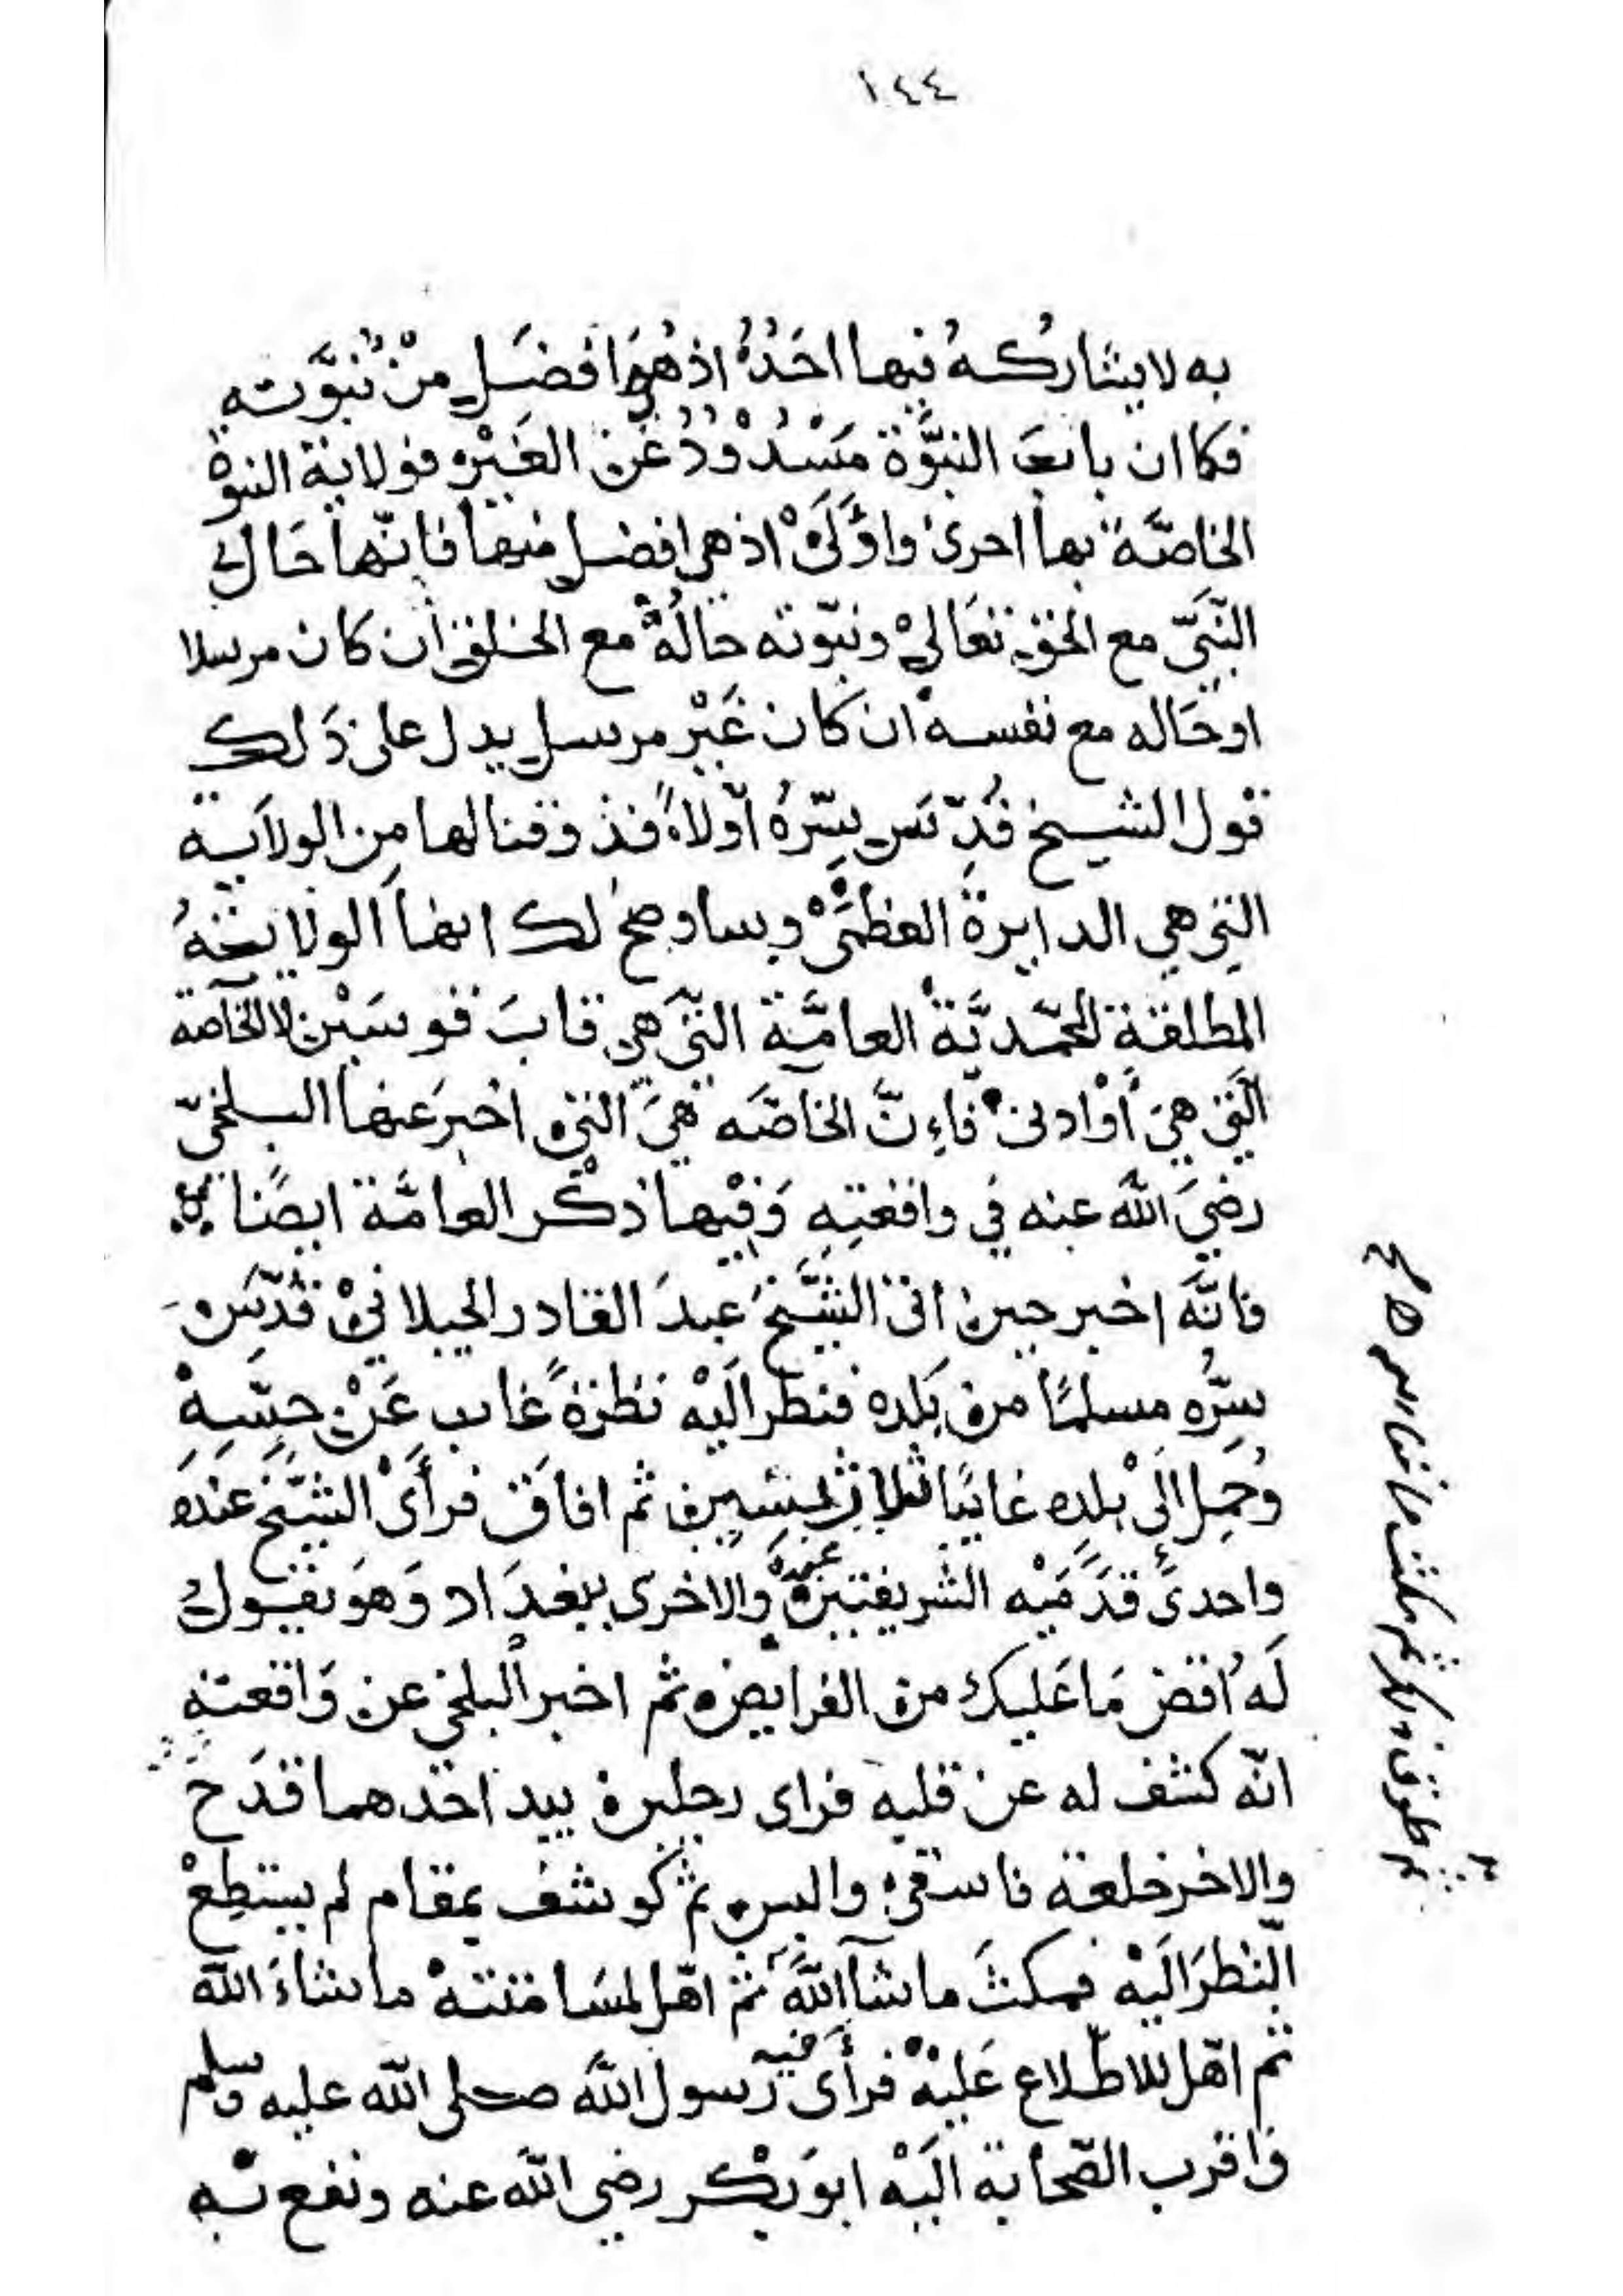 ١٤٤
به لا يشاركه فيها احَدُهُ اذ هى افضَل من نُبوَّته
فكما ان بابَ النبوَّة مَسْدُوْدُ عَن الغَيْر فولاية النبوة
الخاصَّة بها احرى واوْلَىْ اذ هي افضل منها فانّها حَال
النّبَيّ مع الحق تعَالىْ ونبوّته حالُهُ مع الخلق ان كان مرسلا
او حَاله مع نفسه ان كان غَيْر مرسل يدل على ذَلك
قول الشيخ قُدّسَ سِرّهُ اوّلاً فذوقنا لها مِن الولاَية
التِي هي الدايرة العظمَىْ وساوضح لك انها الولاية
المطلقة المحمّديَّة العامَّة التي هي قابَ قوسَيْن لا الخاصّة
الّتي هيَ أوْادنى فاءِنّ الخاصَّه هيَ التي اخبرَ عنها البلخيّ
رضيَ اللّه عنه في واقعتِهِ وَفيْها ذكْر العامَّة ايضًا
فانَّه اخبر حين اتى الشَّيْخ عبدَ القادر الجيلاني قُدّسَ
سِرُّه مسلمًا من بَلده فنظر الَيْه نظرَةً غاب عَنْ حِسّهِ
وُحمِل الَىْ بلدِه غايبًا ثلاث سنين ثم افاق فرأَىْ الشَّيْخ عندَه
واحدىَ قدَمَيْه الشريفتين عنده والاخرى ببغدَاد وَهوَ يقول
لَهُ اقض مَا عَليك من الفرايض ثم اخبر البلخي عن وَاقعته
انّه كشف له عن قلبه فراى رجلين بيد احَدهما قدَح
والاخر خلعة فاسقى والبس ثم كوشف بمقام لم يستطِعْ
النظرَ الَيْه فمكثَ ما شآ اللّهَ ثمّ اهّل لمسَامتته ما شاءَ اللّه
ثم اهّل للاطّلاع عَليْهْ فرأَى فيه رَسول اللّه صلى اللّه عليه وسلم
وَاقرب الصّحابة الَيْه ابوَبكْر رضي اللّه عنه ونفع به